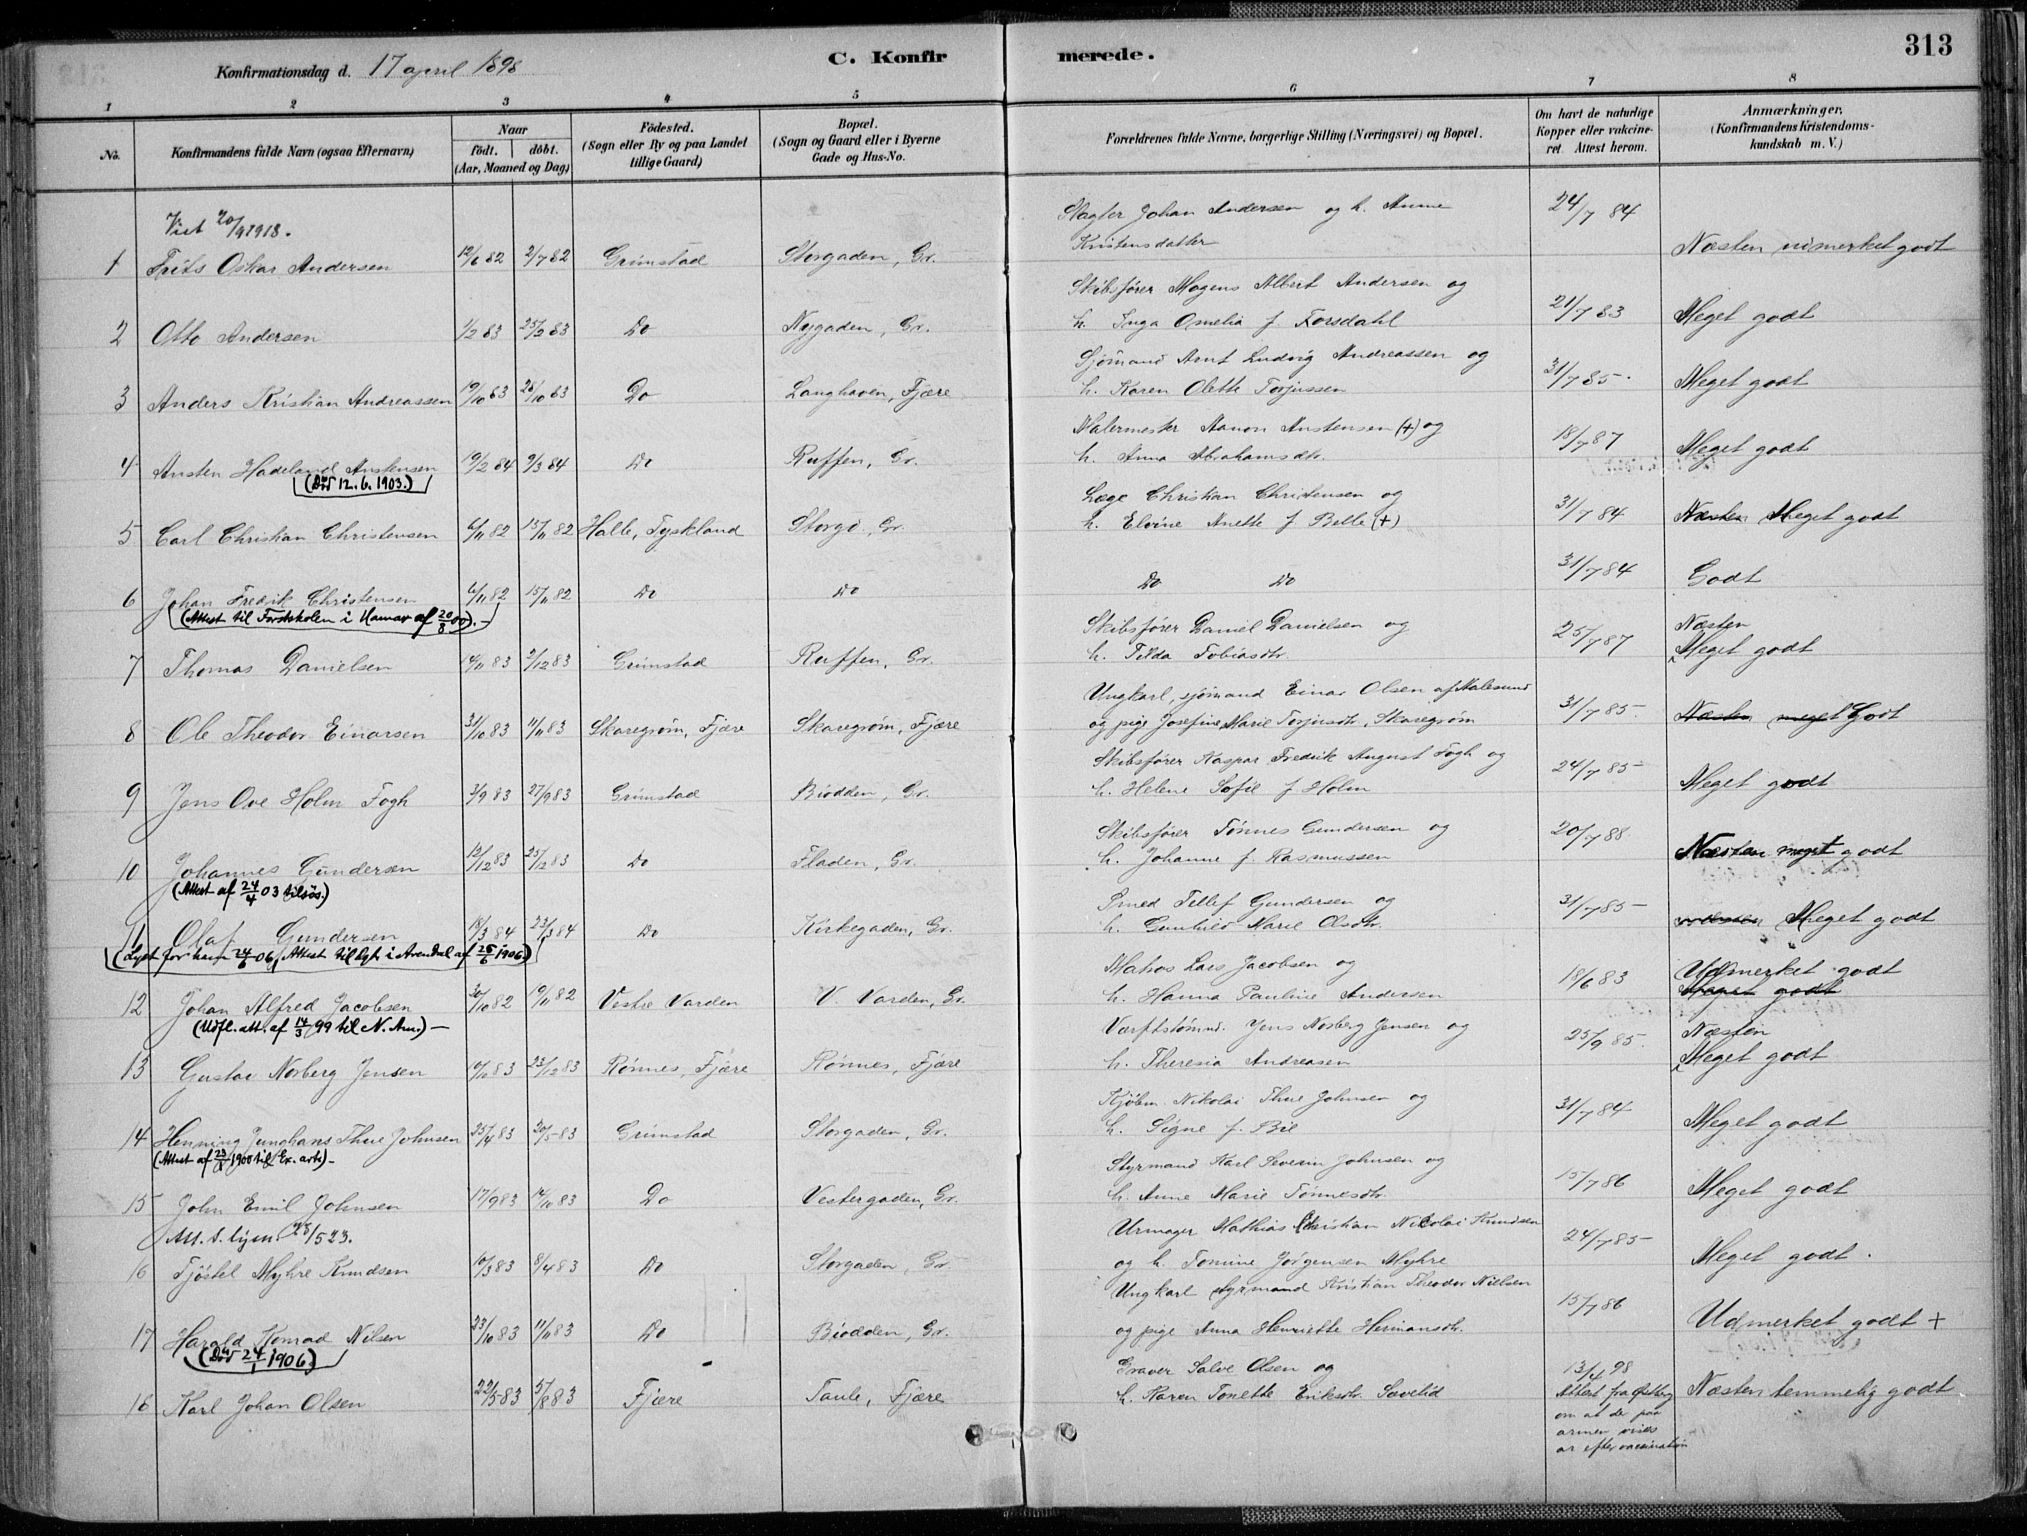 313
Konfirmationsdag d. 17 april 1898
C. Konfirmerede.
1 2 3 4 5 6 7 8
No. Konfirmandens fulde Navn (ogsaa Efternavn) Naar födt. döbt. (Aar, Maaned og Dag) Födested. (Sogn eller By og paa Landet tillige Gaard) Bopæl. (Sogn og Gaard eller i Byerne Gade og Hus-No. Forældrenes fulde Navne, borgerlige Stilling (Næringsvei) og Bopæl. Om havt de naturlige Kopper eller vakcineret. Attest herom. Anmærkninger, (Konfirmandens Kristendomskundskab m. V.)
Viet 20/9 1918.
1 Frits Oskar Andersen 12/6 82 2/7 82 Grimstad Storgaden, Gr. Slagter Johan Andersen og h. Anne Kristensdatter 24/7 84 Næsten udmerket godt
2 Otto Andersen 1/2 83 25/2 83 Do Nygaden, Gr. Skibsfører Mogens Albert Andersen og h. Inga Amelia f. Forsdahl 21/7 83 Meget godt
3 Anders Kristian Andreassen 19/10 83 28/10 83 Do Langhaven, Fjære Sjømand Arnt Ludvig Andreassen og h. Karen Olette Torjussen 31/7 85. Meget godt
4 Ansten Hadeland Anstensen 19/2 84 9/3 84 Do Ruffen, Gr. Malermester Aanon Anstensen (+) og h. Anna Abrahamsdtr. 18/7 87 Meget godt
(Död 12. 6. 1903.)
5 Carl Christian Christensen 6/11 82 15/11 82 Halle, Tyskland Storgd., Gr. Læge Christian Christensen og h. Elvine Anette f Belle (+) 31/7 84 Næsten Meget godt
6 Johan Fredrik Christensen 6/11 82 15/11 82 Do Do Do Do 31/7 84 Godt
(Attest til Forstskolen i Hamar af 20/8 00). -
7 Thomas Danielsen 14/11 83 2/12 83 Grimstad Ruffen, Gr. Skibsfører Daniel Danielsen og h. Tilda Tobiasdtr. 25/7 87 Næsten Meget godt
8 Ole Theodor Einarsen 31/10 83 11/11 83 Skaregrøm, Fjære Skaregrøm, Fjære Ungkarl, sjømand Einar Olsen af Aalesund og pige Josefine Marie Torjusdtr, Skaregrøm 31/7 85 Næsten meget Godt
9 Jens Ove Holm Fogh 3/9 83 27/9 83 Grimstad Biodden, Gr. Skibsfører Kaspar Fredrik August Fogh og h. Helene Sofie f Holm 24/7 85 Meget godt
10 Johannes Gundersen 12/12 83 25/12 83 Do Fladen, Gr. Skibsfører Tønnes Gundersen og h. Johanne f. Rasmussen 20/7 88. Næsten meget godt
(Attest af 24/4 03 tilsös.)
11 Olaf Gundersen 18/3 84 23/3 84 Do Kirkegaden, Gr. Smed Tellef Gundersen og h. Gunhild Marie Olsdtr. 31/7 85 Meget godt
(Lyst for ham 24/6 06, Attest til lysn. i Arendal af 25/6 1906)
12 Johan Alfred Jacobsen 30/10 82 19/11 82 Vestre Varden V. Varden, Gr. Matros Lars Jacobsen og h. Hanna Pauline Andersen 18/6 83 Udmerket godt Meget godt
(Udfl. att. af 14/3 99 til N. Am.) -
13 Gustav Norberg Jensen 10/12 83 23/12 83 Rønnes, Fjære Rønnes, Fjære Værftstømmd. Jens Norberg Jensen og h. Theresia Andreasen 25/9 85. Næsten Meget godt
14 Henning Junghans Thue Johnsen 25/4 83 20/5 83 Grimstad Storgaden, Gr. Kjøbm. Nikolai Thue Johnsen og h. Signe f. Bie 31/7 84 Meget godt
(Attest af 1900 til Ex. art.) -
15 John Emil Johnsen 17/9 83 14/10 83 Do Vestergaden, Gr. Styrmand Karl Severin Johnsen og h. Anne Marie Tønnesdtr. 15/7 86 Meget godt
Att. t. lysn. 25/5 23.
16 Tjöstel Myhre Knudsen 10/3 83 8/4 83 Do Storgaden, Gr. Urmager Mathias Christian Nicolai Knudsen og h. Tomine Jørgensen Myhre 24/7 85 Meget godt.
17 Harald Konrad Nilsen 23/10 83 11/11 83 Do Biodden, Gr. Ungkarl styrmand Kristian Theodor Nielsen og pige Anna Henriette Hermansdtr. 15/7 86 Udmerket godt +
(Död 24/1 1906)
18 Karl Johan Olsen 22/5 83 5/8 83 Fjære Taule, Fjære Graver Salve Olsen og h. Karen Tonette Eriksdtr. Savelid 13/4 98 Attest fra om at der paa armen vises ar efter vaccination Næsten temmelig godt